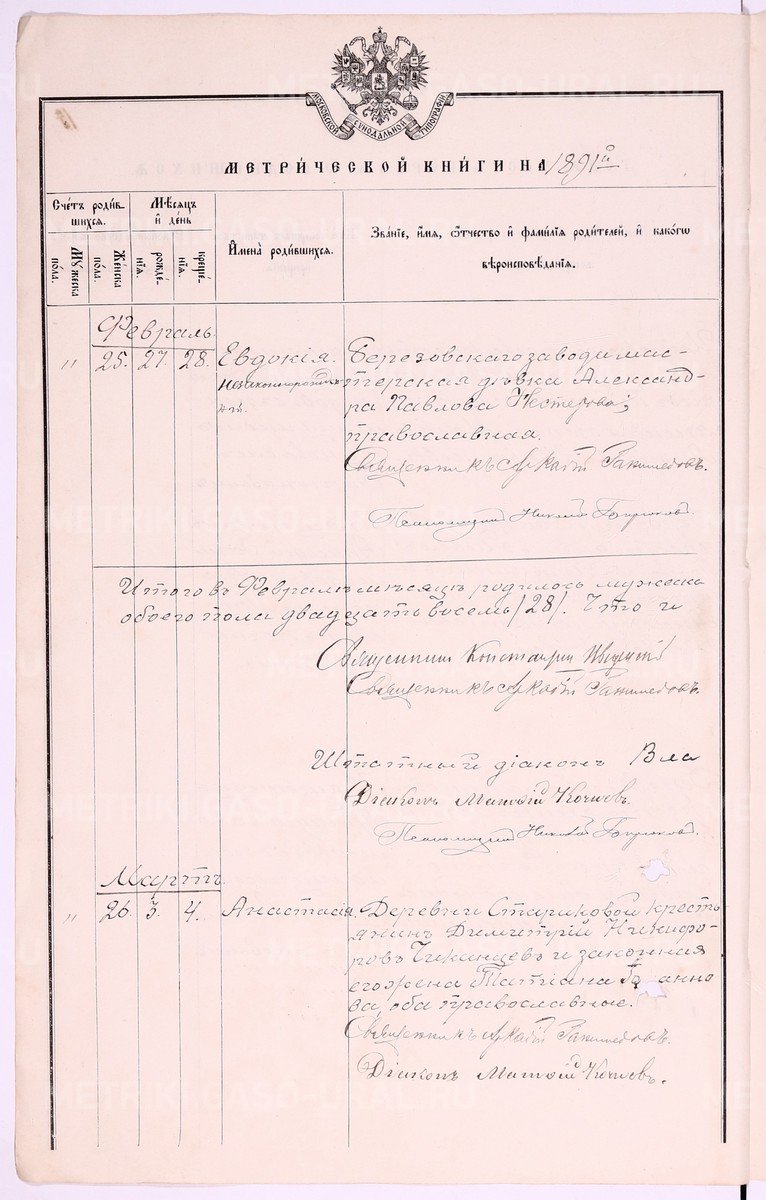 МОСКОВСКОЙ СУНОДАЛЬНОЙ ТИПОГРАФІИ
МЕТРИ́ЧЕСКОЙ КНИ́ГИ НА 1891й
Сче́тъ роди́в-
шихся.
Мѣсяцъ
и де́нь
Имена̀ роди́вшихся.
Зва́ніе, и́мя, о́тчество и фами́лія роди́телей, и како́гѡ
вѣроисповѣ́данія.
Му́жеска
по́ла.
Же́нска
по́ла.
рожде́-
нія.
креще́-
нія.
Февраль.
" 25. 27. 28. Евдокія. Березовскаго завода мас-
незаконнорожден- терская дѣвка Александ-
ная. ра Павлова Нестерова,
православная.
Священникъ Аркадій Ганимедовъ.
Псаломщикъ Николай
Итого въ Февралѣ мѣсяцѣ родилось мужеска
обоего пола двадцать восемь /28/. Что и
Священникъ Константинъ
Священникъ Аркадій Ганимедовъ.
Штатный діаконъ Вла
Діаконъ Матѳій Кочневъ.
Псаломщикъ Николай
Мартъ.
" 26. 3. 4. Анастасія. Деревни Стариковой кресть-
янинъ Димитрій Никифо-
ровъ Чиканцевъ и законная
его жена Татіана Іоанно
ва, оба православные.
Священникъ Аркадій Ганимедовъ.
Діаконъ Матѳій Кочневъ.
METRIKI.GASO-URAL.RU